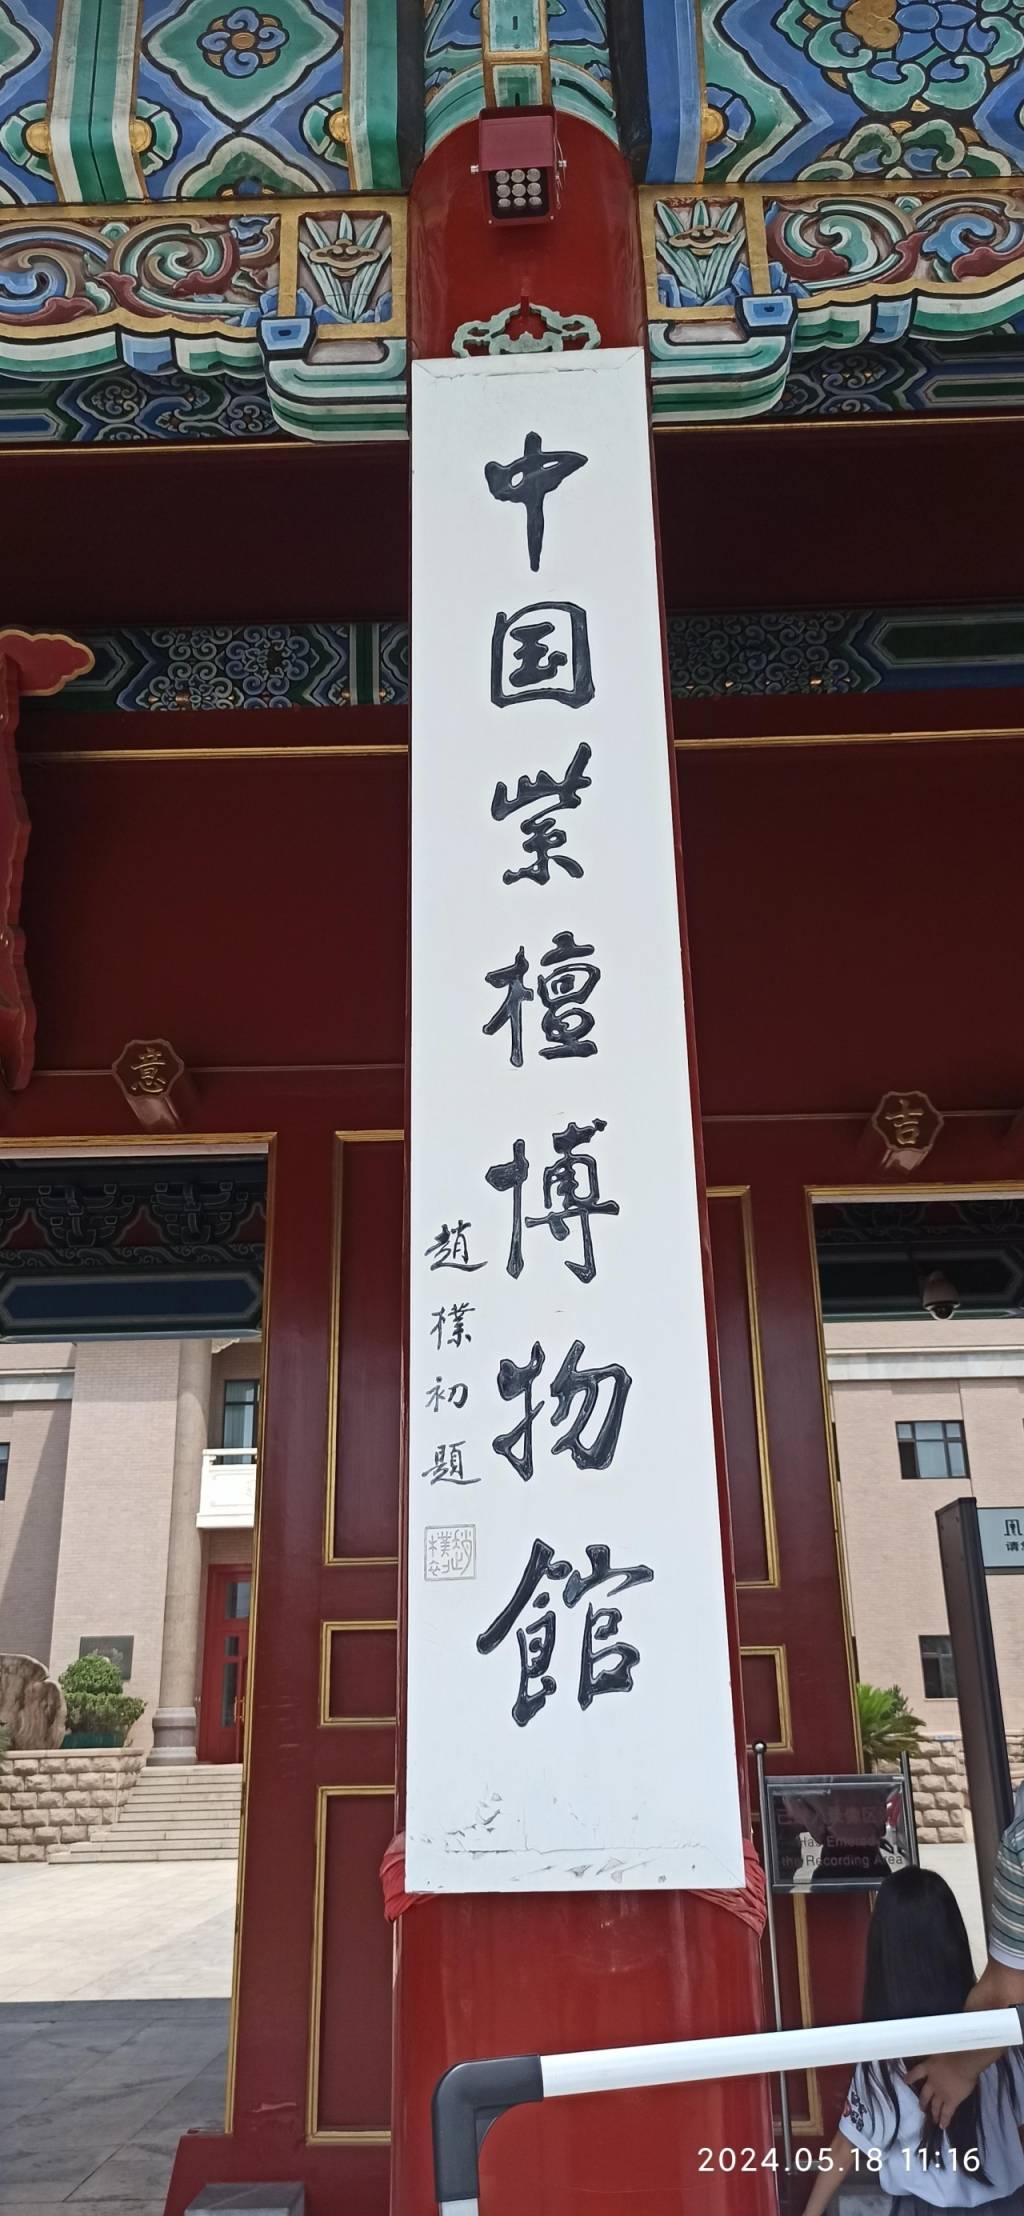 中国紫檀博物館
趙樸初題
意
吉
Has Entered
the Recording Area
2024.05.18 11:16